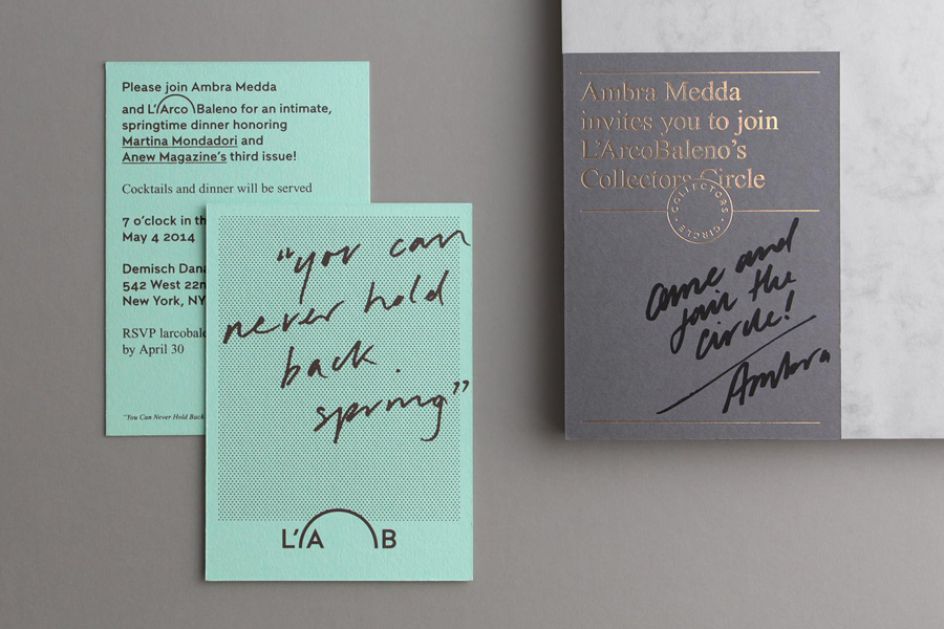 Please join Ambra Medda
and L'Arco Baleno for an intimate,
springtime dinner honoring
Martina Mondadori and
Anew Magazine's third issue!
Cocktails and dinner will be served
7 o'clock in th
May 4 2014
Demisch Dana
542 West 22n
New York, NY
RSVP larcobale
by April 30
"You Can Never Hold Back
"you can
never hold
back
spring"
L'A B
Ambra Medda
invites you to join
L'ArcoBaleno's
Collectors Circle
COLLECTORS
CIRCLE
come and
join the
circle!
Ambra